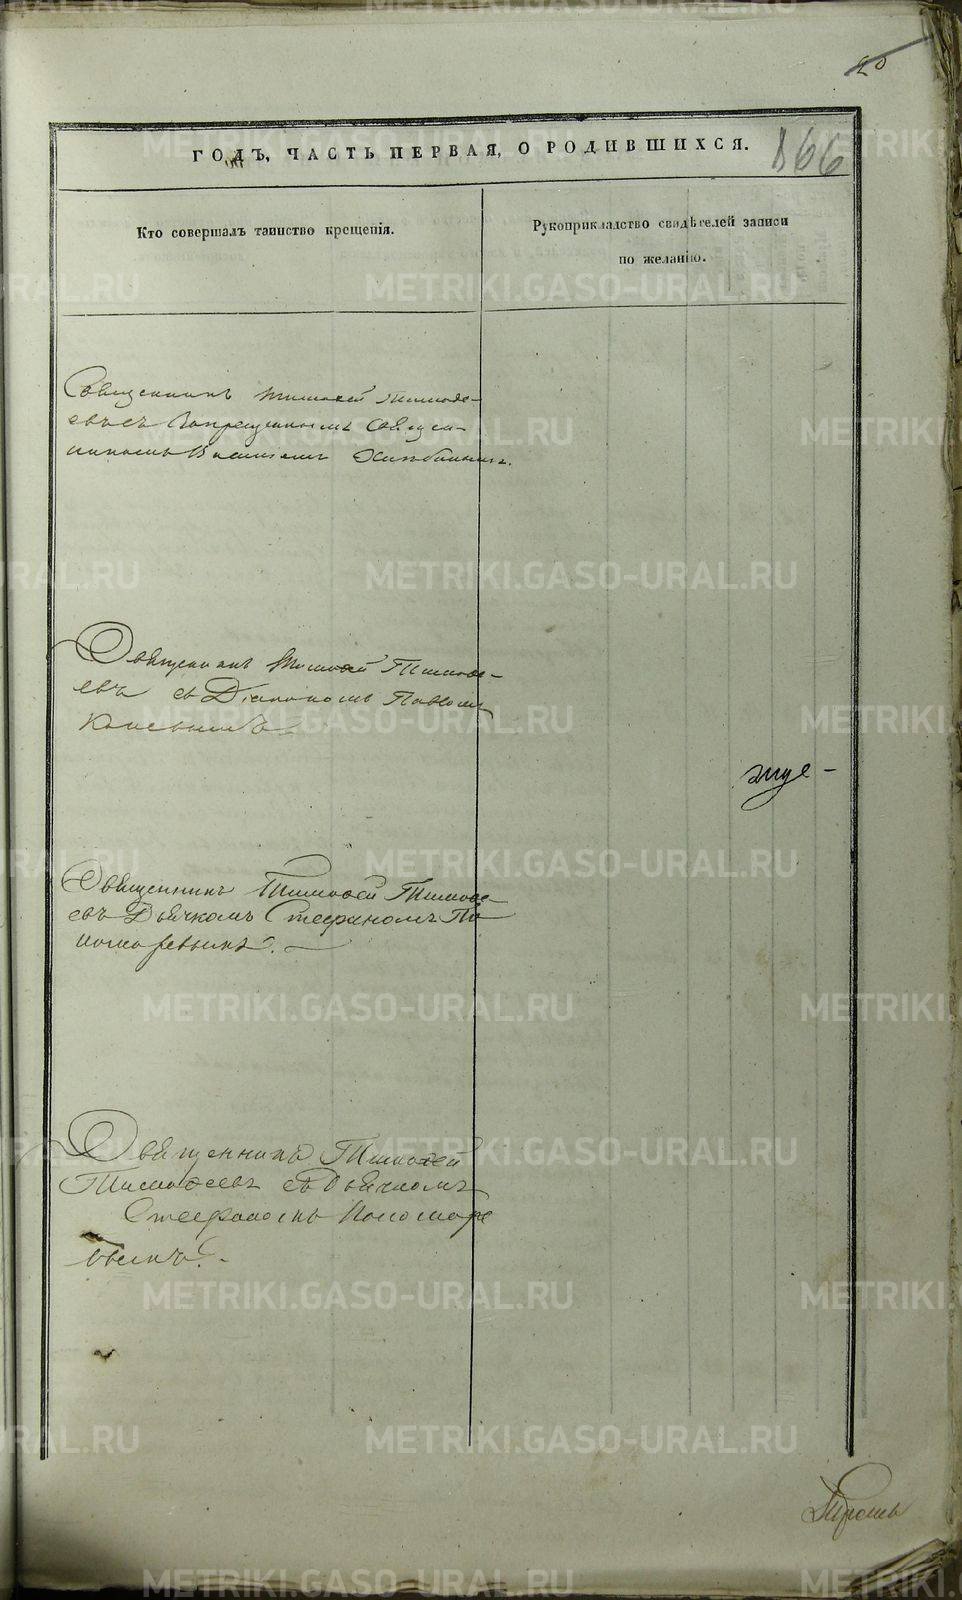 20
ГОДЪ, ЧАСТЬ ПЕРВАЯ, О РОДИВШИХСЯ.
166
Кто совершалъ таинство крещенія.
Рукоприкладство свидѣтелей записи
по желанію.
Священникъ Тимоѳей Тимоѳе-
евъ съ Запрещеннымъ Священ-
никомъ Василіемъ
Священникъ Тимоѳей Тимоѳе-
евъ съ Діакономъ Павломъ
Священникъ Тимоѳей Тимоѳе-
евъ Дьячкомъ Стефаномъ По
номаревымъ.
Священникъ Тимоѳей
Тимоѳеевъ съ Дьячкомъ
Стефаномъ Пономаре
вымъ.
METRIKI.GASO-URAL.RU